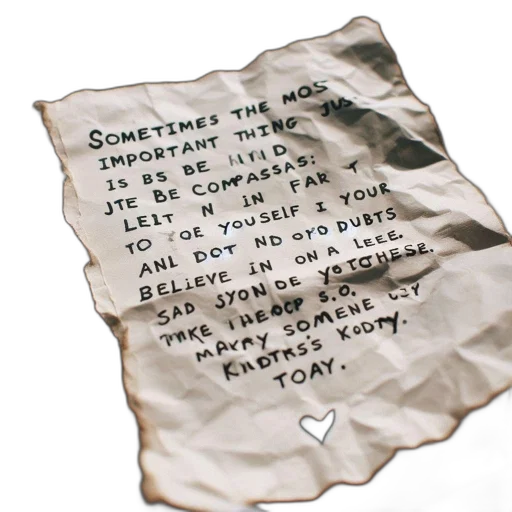 SOMETIMES THE MOS
IMPORTANT THING JUS
IS BS BE
JTE BE COMPASSAS:
LEIT N IN FAR T
TO OE YOUSELF I YOUR
ANL DOT ND OFO DUBTS
BELIEVE IN ON A LEEE.
SAD SYON DE YOTOTHESE.
S.O.
MAVRY SOMENE
KINDTRS'S KODTY.
TOAY.